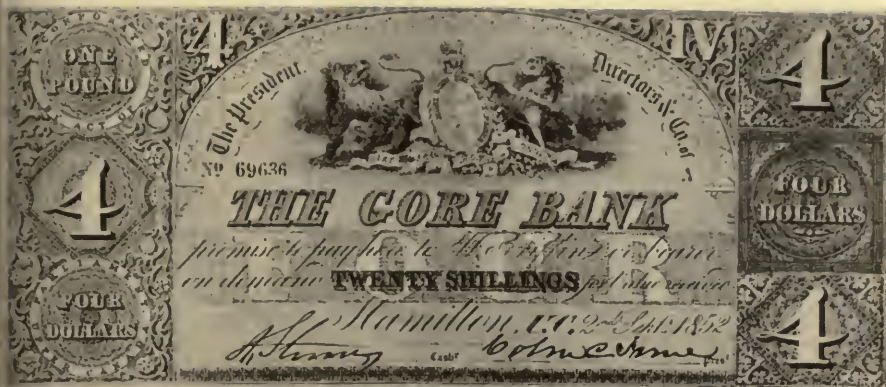 CORPO
ONE
POUND
ACT OF
4
FOUR
DOLLARS
4
IV
The President, Directors & Co. of
No 69636
THE GORE BANK
promise to pay to or bearer
FOUR
on demand TWENTY SHILLINGS for value received
Hamilton, 2 Sept. 1852
Cashr
4
FOUR
DOLLARS
4